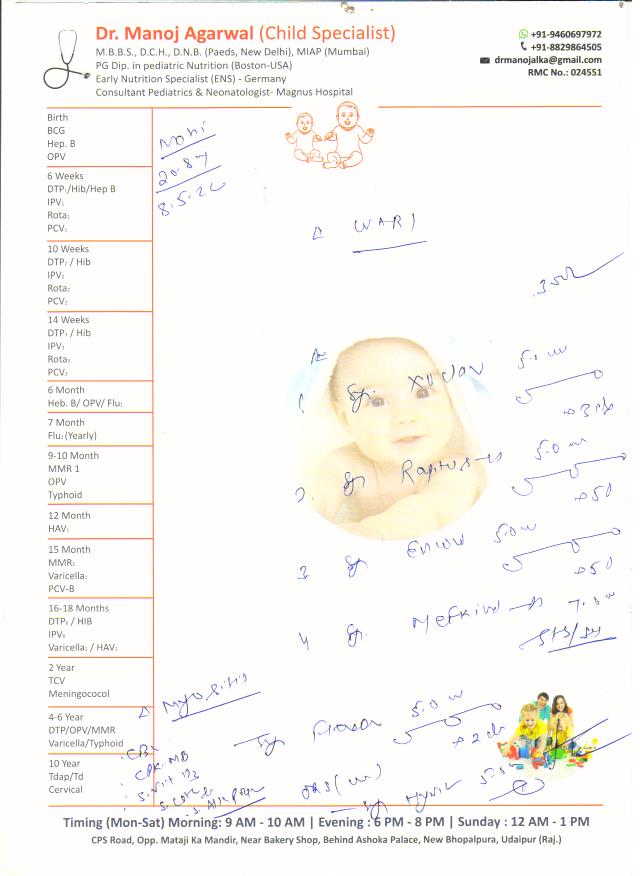 Dr. Manoj Agarwal (Child Specialist)
M.B.B.S., D.C.H., D.N.B. (Paeds, New Delhi), MIAP (Mumbai)
PG Dip. in pediatric Nutrition (Boston-USA)
Early Nutrition Specialist (ENS) - Germany
Consultant Pediatrics & Neonatologist- Magnus Hospital
+91-9460697972
+91-8829864505
drmanojalka@gmail.com
RMC No.: 024551
Birth
BCG
Hep. B
OPV
6 Weeks
DTP₁/Hib/Hep B
IPV₁
Rota₁
PCV₁
8.5.22
Δ WARI
10 Weeks
DTP₂ / Hib
IPV₂
Rota₂
PCV₂
14 Weeks
DTP₃ / Hib
IPV₃
Rota₃
PCV₃
6 Month
Heb. B/ OPV/ Flu₁
7 Month
Flu₂(Yearly)
9-10 Month
MMR 1
OPV
Typhoid
12 Month
HAV₁
15 Month
MMR₂
Varicella₁
PCV-B
16-18 Months
DTP₄ / HIB
IPV₄
Varicella₂ / HAV₂
2 Year
TCV
Meningococol
4-6 Year
DTP/OPV/MMR
Varicella/Typhoid
10 Year
Tdap/Td
Cervical
1. Syr. 5.0 ml
2. Syr 5.0 ml
→ 5D
3 Syr 5.0 ml
→ 5D
4 Syr. 7.0 ml
SOS/
Δ Myositis
Syr 5.0 ml
CBC
CPK-MB
S. Vit D3
ORS
Syr 5.0
Timing (Mon-Sat) Morning: 9 AM - 10 AM | Evening : 6 PM - 8 PM | Sunday : 12 AM - 1 PM
CPS Road, Opp. Mataji Ka Mandir, Near Bakery Shop, Behind Ashoka Palace, New Bhopalpura, Udaipur (Raj.)